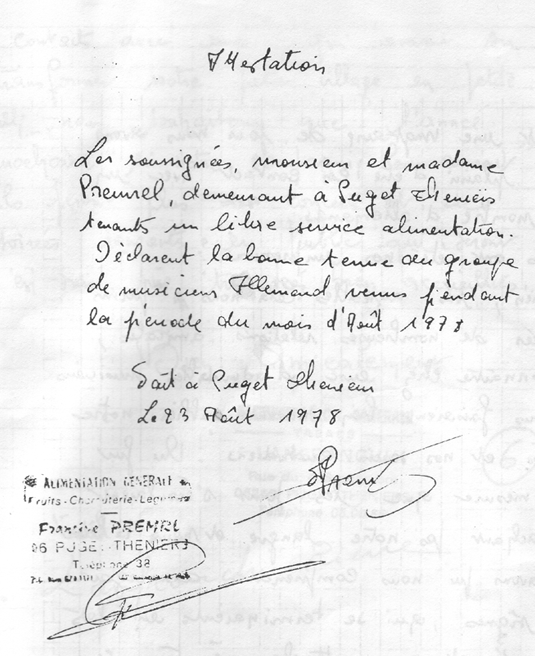 Attestation
Les soussignées, monsieur et madame
Premrel, demeurant à Puget Theniers
tenants un libre service alimentation.
Déclarent la bonne tenue du groupe
de musiciens Allemand venus pendant
la période du mois d'Août 1978
Fait à Puget Theniers
Le 23 Août 1978
ALIMENTATION GENERALE
Fruits - Charcuterie - Legumes
Francine PREMRL
06 PUGET-THENIERS
Téléphone 38